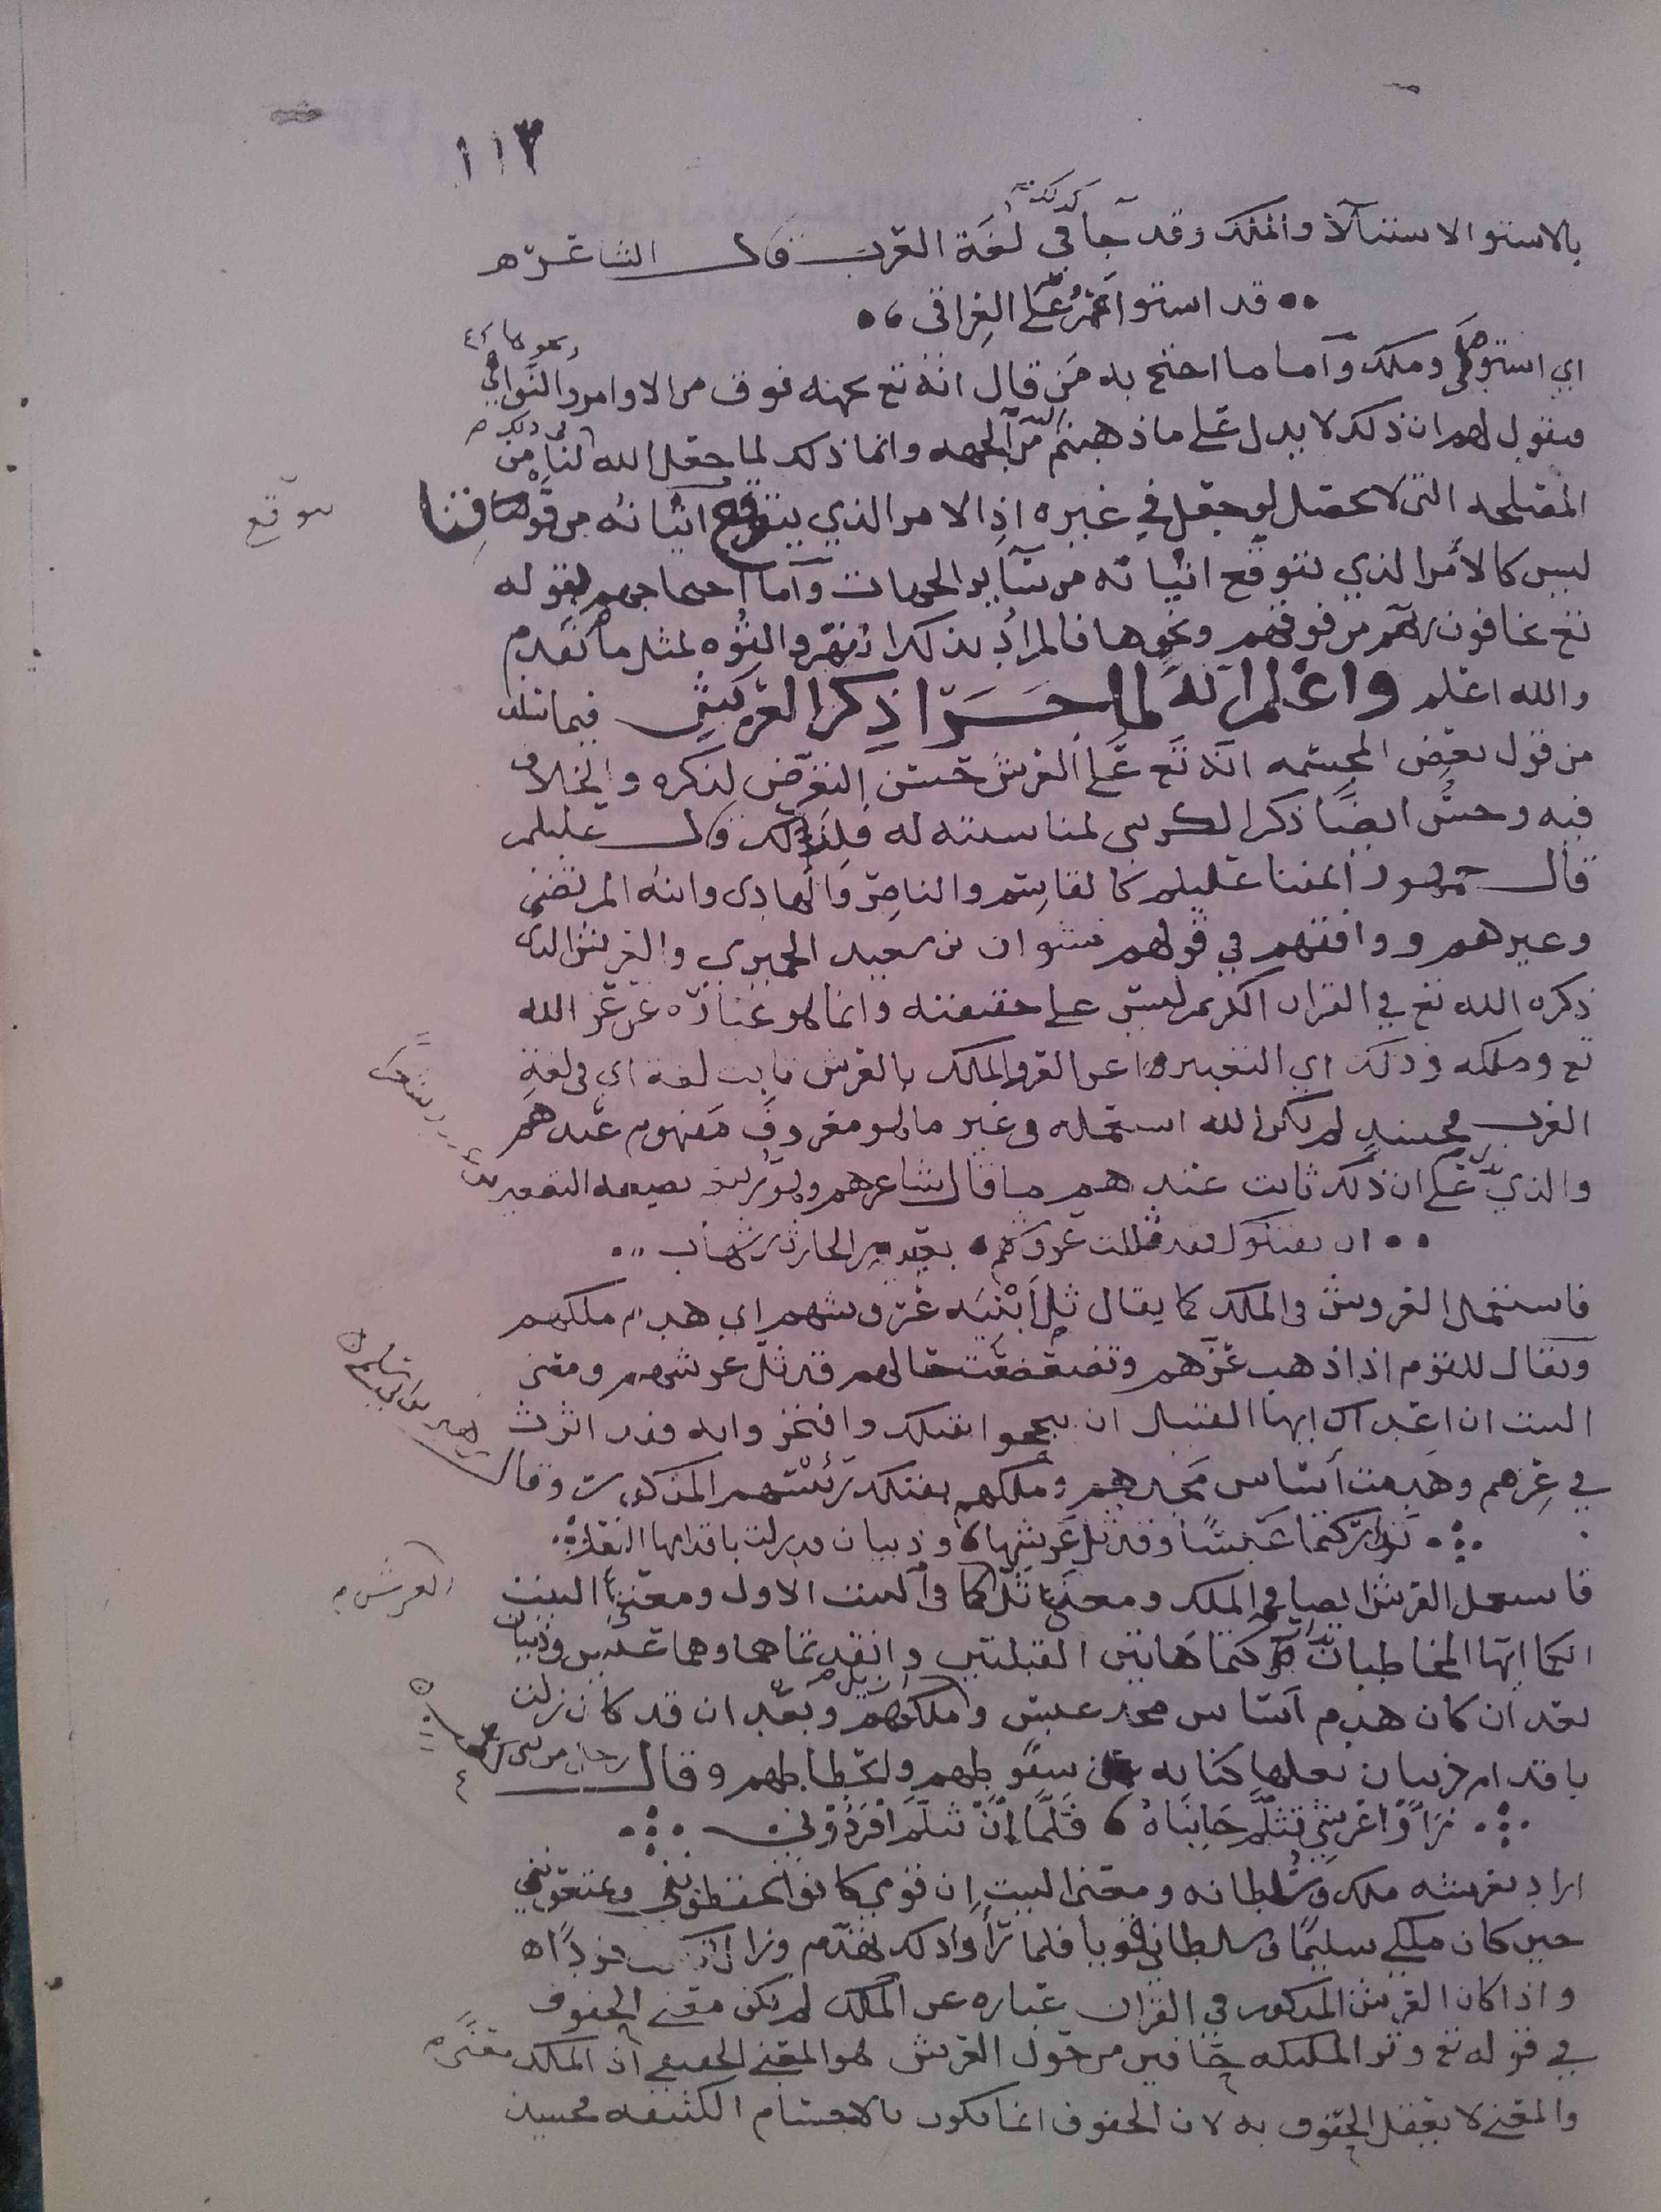 ١١٣
بالاستوا الاستيلآ والملك وقد جآ في لغة العرب كذلك قال الشاعر ه
قد استوا عمرٌ على العراق
اي استولى وملك وآما ما احتج به من قال انه تع بجهة فوق من الاوامر والنواهي
فنقول لهم ان ذلك لا يدل على ما ذهبتم من الجهه وانما ذلك لما جعل الله لنا من
المصلحه التي لا تحصل لو جعل في غيره اذ الامر الذي يتوقع اتيانه من فوقنا
يتوقع
ليس كالأمر الذي نتوقع اتيانه من سآير الجهات وآما احتجاجهم بقوله
تع يخافون ربهم من فوقهم ونحوها فالمراد بذلك القهر والقوه لمثل ما تقدم
والله اعلم واعلم انه لما جرا ذكر العرش فيما تقدم
من قول بعض المجسمه انه تع على العرش حسن التعرض لذكره والخلاف
فيه وحسن ايضًا ذكر الكرسي لمناسبته له فلذلك قال عليلم
قال جمهور ائمتنا عليلم كالقاسم والناصر والهادي وابنه المرتضى
وغيرهم ووافقهم في قولهم نشوان بن سعيد الحميري والعرش الذي
ذكره الله تع في القران الكريم ليس على حقيقته وانما هو عبارة عن عز الله
تع وملكه وذلك اي التعبير عن العز والملك بالعرش ثابت لغة اي في لغة
العرب فحينيذٍ لم يكن الله استعمله في غير ما هو معروف مفهوم عندهم
والذي يدل على ان ذلك ثابت عندهم ما قال شاعرهم وهو بصيغه التصغير
ان يقتلوك فقد ثللت عروشهم بعتيبه بن الحارث بن شهاب
فاستعمل العروش في الملك كما يقال ثل ابنيه عروشهم اي هدم ملكهم
ويقال للقوم اذا ذهب عزهم وتضعضعت حالهم قد ثل عرشهم ومعنى
البيت ان اعداك ايها القتيل ان بجحوا بقتلك وافتخروا به فقد اثرت
في عزهم وهدمت أساس مجدهم وملكهم بقتلك رئيسهم المذكور وقال
تداركتما عبسًا وقد ثل عرشها وذبيان قد زلت باقدامها النعل
فاستعمل العرش ايضا في الملك ومعنى ثل كما في البيت الاول ومعنى البيت
العرش
انكما ايها المخاطبان تداركتما هاتين القبيلتين وانقذتماهما وهما عبس وذبيان
بعد ان كان هدم اساس مجد عبس وملكهم وبعد ان قد كان زلت
باقدام ذبيان نعلها كنايه عن سقوطهم وانحطاطهم وقال
رَأَوْا عرشي تثلم جانباهُ فَلَمَّا أَنْ تثلم افردوني
اراد بعرشه ملكه وسلطانه ومعنى البيت ان قومي كانوا يحفظونني ويمنعونني
حين كان ملكي سليمًا وسلطاني قويا فلما رأوا ذلك تهدم وزال
واذا كان العرش المذكور في القران عباره عن الملك لم يكن معنى الحفوف
في قوله تع وترا الملئكه حآفين من حول العرش هو المعنى الحقيقي اذ الملك معنى
والمعنى لا يعقل الحفوف به لان الحفوف انما يكون بالاجسام الكثيفه فحينيذ